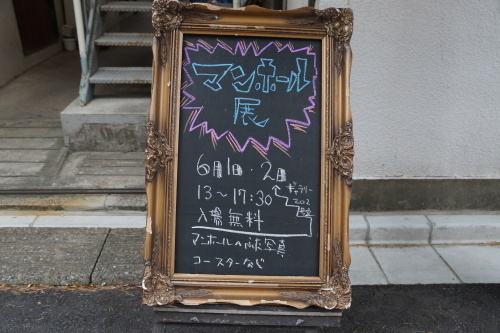 マンホール
展
6月1日・2日
13～17:30
ギャラリー
202
入場無料
マンホールの
写真
コースターなど